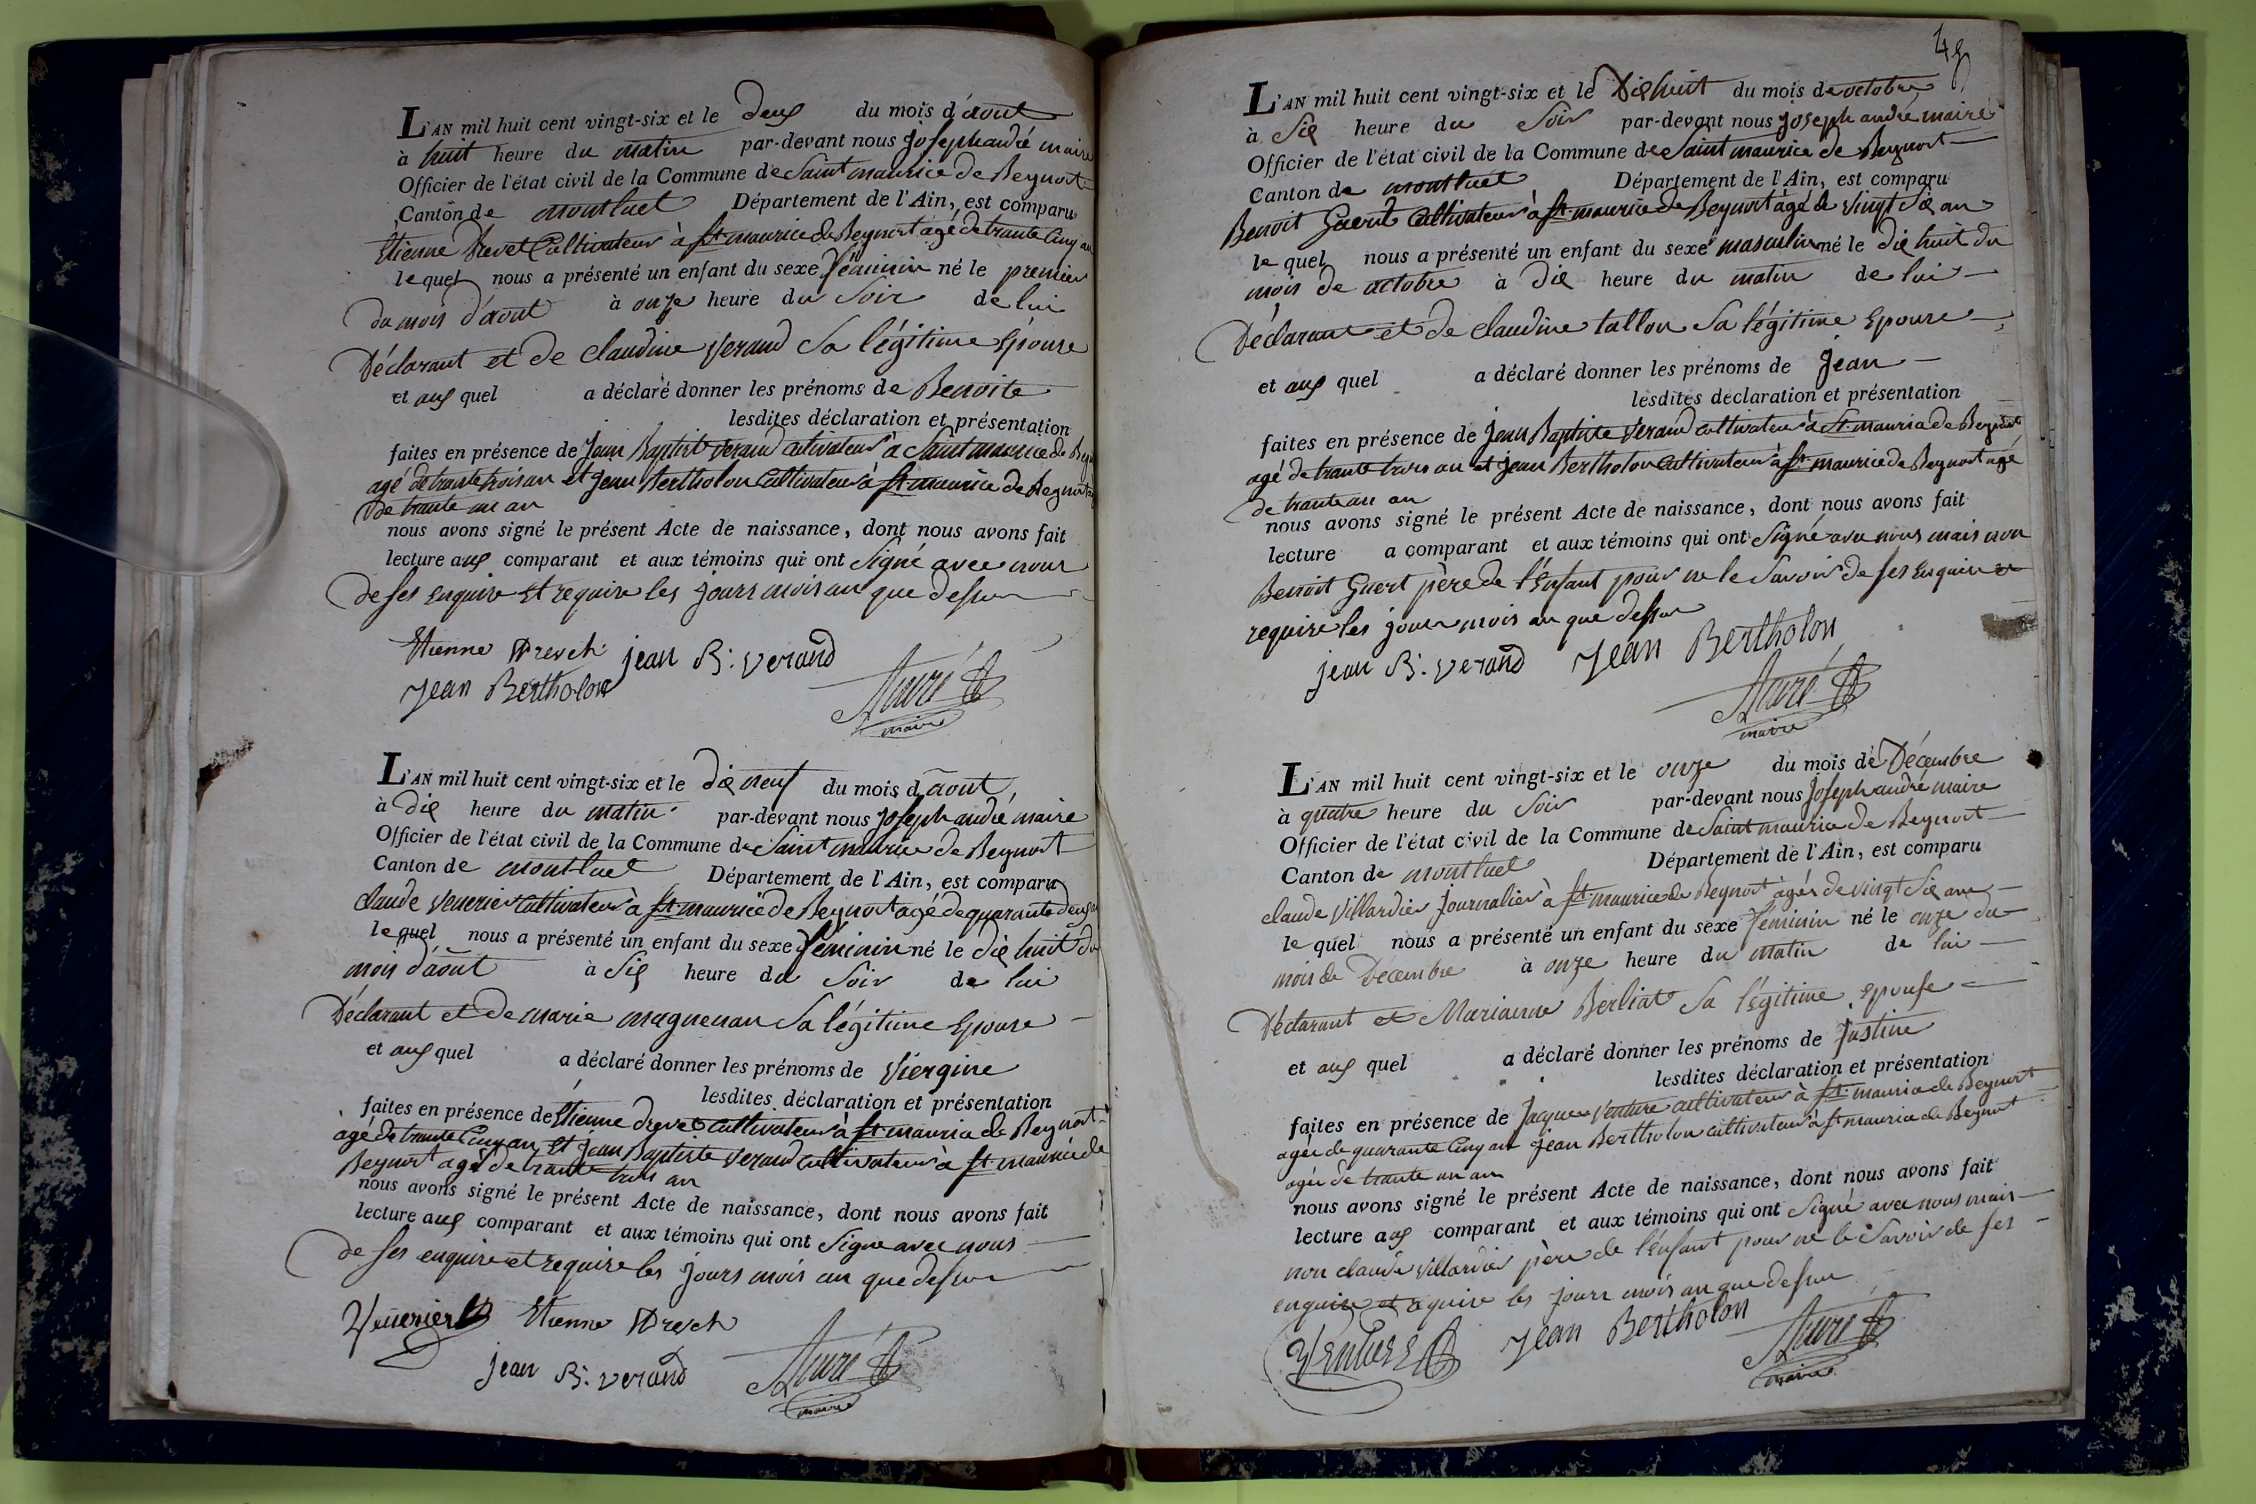 L'AN mil huit cent vingt-six et le deux du mois d'aout
à huit heure du matin par-devant nous joseph andré maire
Officier de l'état civil de la Commune de Saint maurice de Beynost
Canton de montluel Département de l'Ain, est comparu
Etienne Drevet Cultivateur à St maurice de Beynost agé de trante Cinq an
le quel nous a présenté un enfant du sexe féminin né le premier
du mois d'aout à onze heure du Soir de lui
Déclarant et de claudine Verand Sa légitime Epouse
et aux quel a déclaré donner les prénoms de Benoite
lesdites déclaration et présentation
faites en présence de Jean Baptiste verand cultivateur a Saint maurice de
agé de trante trois an et jean Bertholon Cultivateur à St maurice de Beynost
de trante un an
nous avons signé le présent Acte de naissance, dont nous avons fait
lecture aux comparant et aux témoins qui ont Signé avec nous
de ses enquire Et require les jours mois an que dessus
Etienne Drevet jean B. verand
Jean Bertholon André
maire
L'AN mil huit cent vingt-six et le dix neuf du mois d'aout
à dix heure du matin par-devant nous joseph andré maire
Officier de l'état civil de la Commune de Saint maurice de Beynost
Canton de montluel Département de l'Ain, est comparu
claude Venerier Cultivateur à St maurice de Beynost agé de quarante deux
le quel nous a présenté un enfant du sexe féminin né le dix huit du
mois d'aout à Six heure du Soir de lui
Déclarant et de marie magnenan Sa légitime Epouse
et aux quel a déclaré donner les prénoms de Viergine
lesdites déclaration et présentation
faites en présence de Etienne drevet cultivateur à St mauria de Beynost
agé de trante Cinq an Et jean Baptiste verand Cultivateur à St maurice de
Beynost agé de trante trois an
nous avons signé le présent Acte de naissance, dont nous avons fait
lecture aux comparant et aux témoins qui ont Signe avec nous
de ses enquire et require les jours mois an que dessus
Venerier Etienne Drevet
jean B. verand André
maire
48
L'AN mil huit cent vingt-six et le Dix huit du mois de octobre
à Six heure du Soir par-devant nous joseph andré maire
Officier de l'état civil de la Commune de Saint maurice de Beynost
Canton de montluel Département de l'Ain, est comparu
Benoit Guert Cultivateur à St maurice de Beynost agé de vingt Six an
le quel nous a présenté un enfant du sexe masculin né le dix huit du
mois de octobre à Dix heure du matin de lui
Déclarant et de claudine tallon Sa légitime Epouse
et aux quel a déclaré donner les prénoms de jean
lesdites déclaration et présentation
faites en présence de jean Baptiste Verand cultivateur à St mauria de Beynost
agé de trante trois an et jean Bertholon Cultivateur à St maurice de Beynost agé
de trante un an
nous avons signé le présent Acte de naissance, dont nous avons fait
lecture a comparant et aux témoins qui ont Signé avec nous mais non
Benoit Guert père de l'Enfant pour ne le Savoir de ses Enquire et
require les jours mois an que dessus
jean B. verand Jean Bertholon
André
maire
L'AN mil huit cent vingt-six et le onze du mois de Décembre
à quatre heure du Soir par-devant nous joseph andré maire
Officier de l'état civil de la Commune de Saint maurice de Beynost
Canton de montluel Département de l'Ain, est comparu
claude Villardier journalier à St maurice de Beynost agés de vingt Six ans
le quel nous a présenté un enfant du sexe féminin né le onze du
mois de Décembre à onze heure du matin de lui
Déclarant et Marianne Berliat Sa légitime épouse
et aux quel a déclaré donner les prénoms de Justine
lesdites déclaration et présentation
faites en présence de Jacques Venture cultivateur à St mauria de Beynost
agés de quarante Cinq an jean Bertholon cultivateur à St maurice de Beynost
agés de trante un an
nous avons signé le présent Acte de naissance, dont nous avons fait
lecture aux comparant et aux témoins qui ont Signé avec nous mais
non claude Villardier père de l'Enfant pour ne le Savoir de ses
enquire et require les jours mois an que dessus
Jean Bertholon André
maire